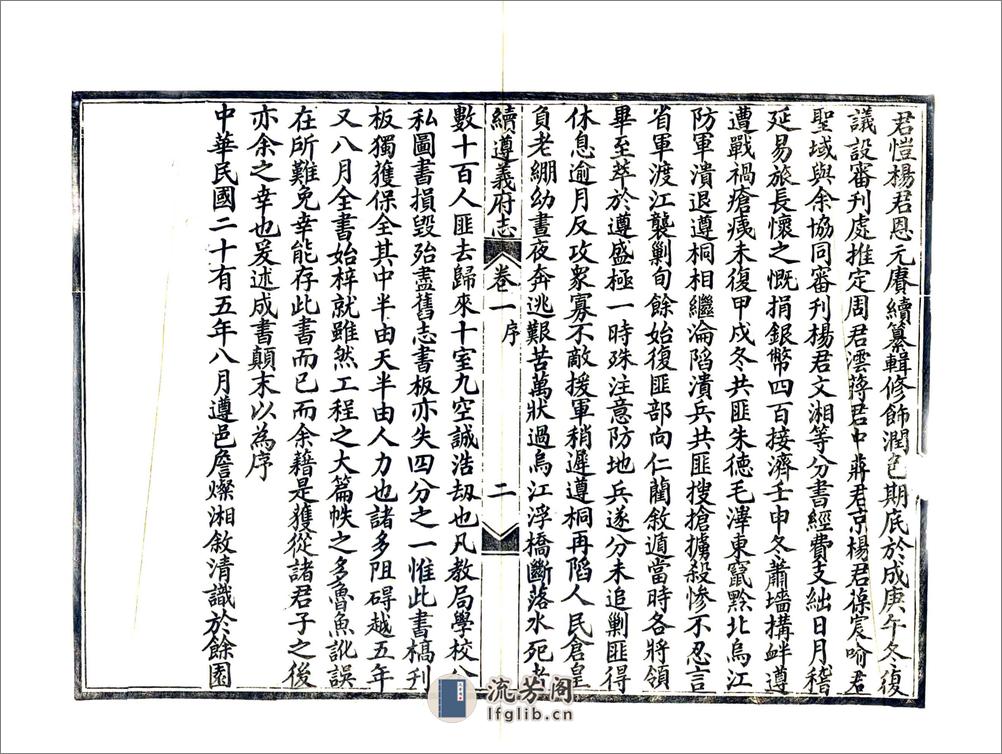 君愷楊君恩元賡續纂輯修飾潤色期底於成庚午冬復
議設審刊處推定周君澐蔣君中蔣君京楊君葆宸喻君
聖域與余協同審刊楊君文湘等分書經費支絀日月稽
延易旅長懷之慨捐銀幣四百接濟壬申冬蕭墻搆衅遵
遭戰禍瘡痍未復甲戌冬共匪朱德毛澤東竄黔北烏江
防軍潰退遵桐相繼淪陷潰兵共匪搜搶擄殺慘不忍言
省軍渡江襲剿旬餘始復匪部向仁藺敘遁當時各將領
畢至萃於遵盛極一時殊注意防地兵遂分未追剿匪得
休息逾月反攻衆寡不敵援軍稍遲遵桐再陷人民倉皇
負老綳幼晝夜奔逃艱苦萬狀過烏江浮橋斷落水死者
續遵義府志 卷一 序 二
數十百人匪去歸來十室九空誠浩刼也凡教局學校公
私圖書損毀殆盡舊志書板亦失四分之一惟此書槁刊
板獨獲保全其中半由天半由人力也諸多阻碍越五年
又八月全書始梓就雖然工程之大篇帙之多魯魚訛誤
在所難免幸能存此書而已而余藉是獲從諸君子之後
亦余之幸也爰述成書顛末以為序
中華民國二十有五年八月遵邑詹燦湘敘清識於餘園
流芳阁
lfglib.cn